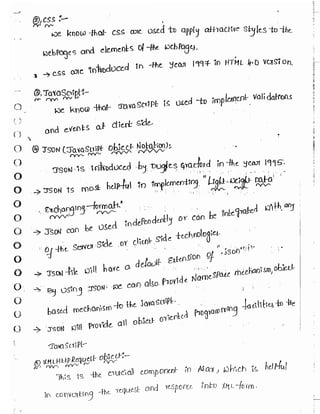 ②.CSS :-
we know that css are used to apply attractive styles to the
webpages and elements of the webpages.
→ css are Introduced in the year 1997 in HTML 4.0 version.
②. JavaScript:-
We know that JavaScript is used to implement validations
and events at client side.
JSON (JavaScript Object Notation):
JSON is Introduced by Dugles in the year 1995.
→ JSON is most helpful in implementing "Light-weight Data
Exchanging-format."
→ JSON can be used independently or can be integrated with any
of the Server Side or client side technologies.
→ JSON file will have a default Extension of ".json".
→ By using JSON we can also provide NameSpace mechanism, object
based mechanism to the JavaScript.
→ JSON will Provide all object oriented Programming facilities to the
JavaScript
XMLHttpRequest object:-
This is the crucial component in AJAX, which is helpful
in converting the request and response into XML-form.